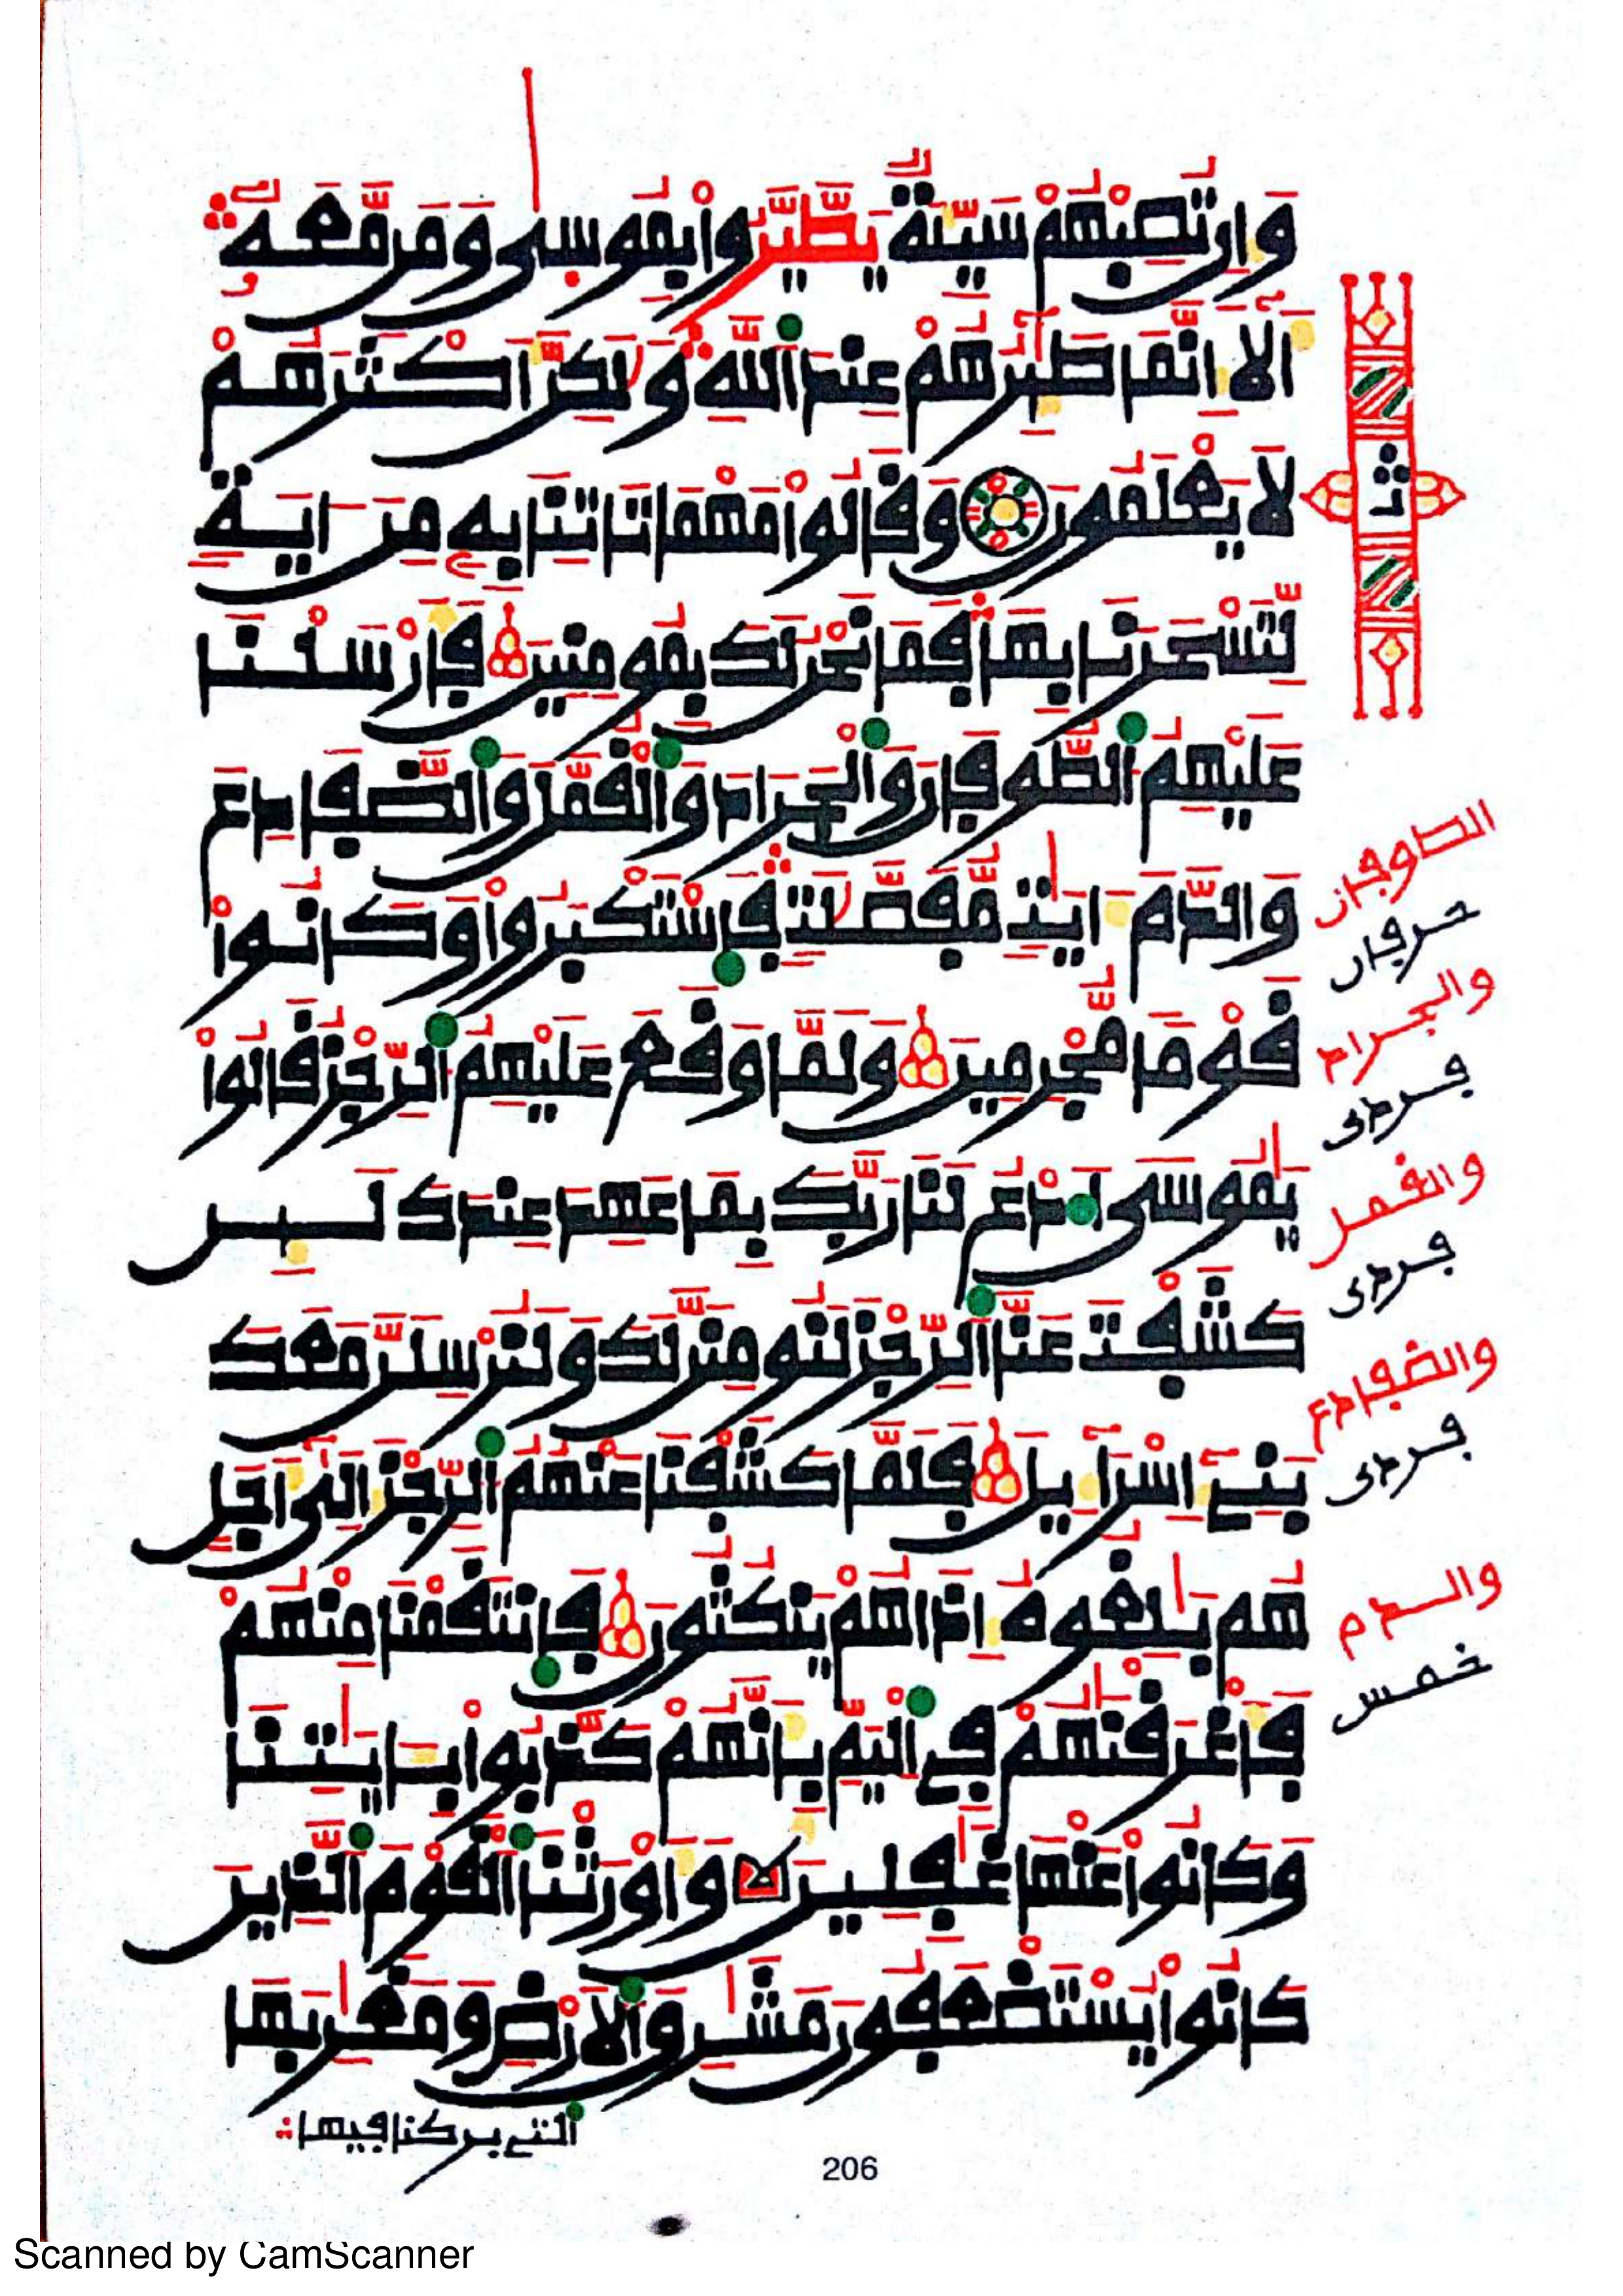 وَإِن تُصِبْهُمْ سَيِّئَةٌ يَطَّيَّرُواْ بِمُوسَىٰ وَمَن مَّعَهُۥ
أَلَا إِنَّمَا طَٰٓئِرُهُمْ عِندَ ٱللَّهِ وَلَٰكِنَّ أَكْثَرَهُمْ
لَا يَعْلَمُونَ وَقَالُواْ مَهْمَا تَاتِنَا بِهِۦ مِنَ ايَةٍ
لِّتَسْحَرَنَا بِهَا فَمَا نَحْنُ لَكَ بِمُومِنِينَ فَأَرْسَلْنَا
عَلَيْهِمُ ٱلطُّوفَانَ وَٱلْجَرَادَ وَٱلْقُمَّلَ وَٱلضَّفَادِعَ
وَالدَّمَ ءَايَٰتٍ مُّفَصَّلَٰتٍ فَٱسْتَكْبَرُواْ وَكَانُواْ
قَوْمًا مُّجْرِمِينَ وَلَمَّا وَقَعَ عَلَيْهِمُ ٱلرِّجْزُ قَالُواْ
يَٰمُوسَى ٱدْعُ لَنَا رَبَّكَ بِمَا عَهِدَ عِندَكَ لَئِن
كَشَفْتَ عَنَّا ٱلرِّجْزَ لَنُومِنَنَّ لَكَ وَلَنُرْسِلَنَّ مَعَكَ
بَنِىٓ إِسْرَآءِيلَ فَلَمَّا كَشَفْنَا عَنْهُمُ ٱلرِّجْزَ إِلَىٰٓ أَجَلٍ
هُم بَٰلِغُوهُ إِذَا هُمْ يَنكُثُونَ فَٱنتَقَمْنَا مِنْهُمْ
فَأَغْرَقْنَٰهُمْ فِى ٱلْيَمِّ بِأَنَّهُمْ كَذَّبُواْ بِـَٔايَٰتِنَا
وَكَانُواْ عَنْهَا غَٰفِلِينَ وَأَوْرَثْنَا ٱلْقَوْمَ ٱلَّذِينَ
كَانُواْ يُسْتَضْعَفُونَ مَشَٰرِقَ ٱلَارْضِ وَمَغَٰرِبَهَا
ٱلتي بركنا فيها
ثمن
الطوفان
حرفان
والجراد
فردى
والقمل
فردى
والضفادع
فردى
والدم
خمس
206
Scanned by CamScanner